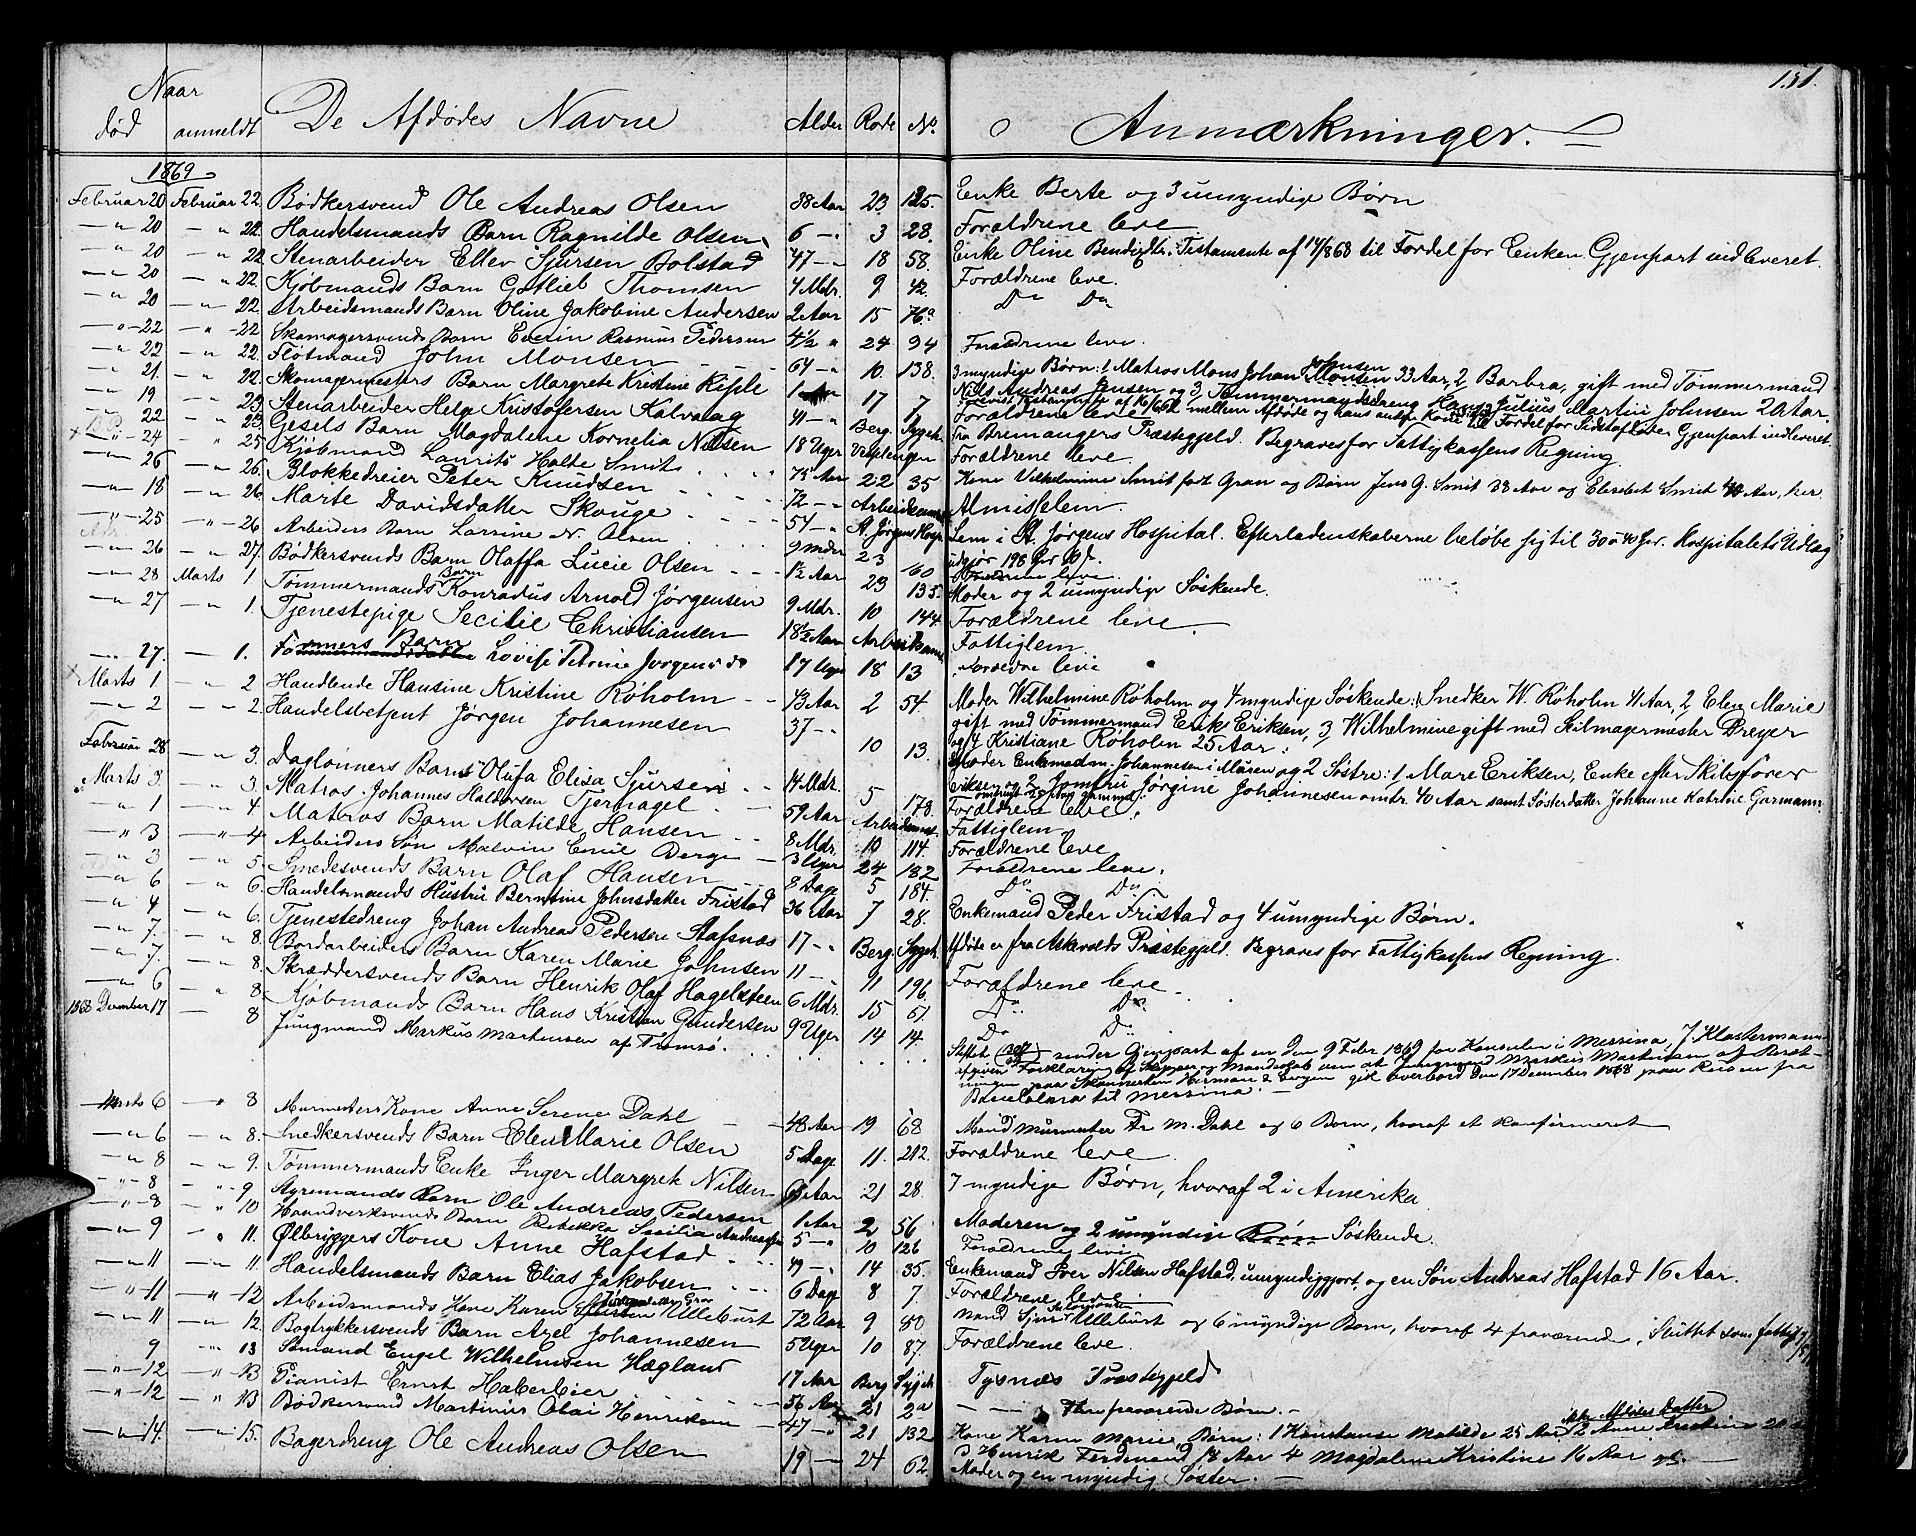 151.
Naar
død anmeldt De Afdødes Navne Alder Rode No. Anmærkninger.
1869
Februar 20 Februar 22. Bødkersvend Ole Andreas Olsen 38 Aar 23 125. Enke Berte og 3 umyndige Børn
" 20 " 22. Handelsmands Barn Ragnilde Olsen 6 " 3 28. Forældrene leve
" 20 " 22. Stenarbeider Ellev Sjursen Bolstad 47 " 18 58. Enke Oline Bendixdtr. Testamente af 14/8 68 til Fordel for Enken Gjenpart indleveret.
" 20 " 22. Kjøbmands Barn Gotlieb Thomsen 4 Mdr. 9 42. Forældrene leve.
" 20 " 22. Arbeidsmands Barn Oline Jakobine Andersen 2 Aar 15 76a Do Do
" 22 " 22. Skomagersvends Barn Everin Rasmus Pedersen 4 1/2 " 24 94 Forældrene leve.
" 22 " 22. Fløtmand John Monsen 64 " 10. 138. 3 myndige Børn: 1 Matros Mons Johan Monsen 33 Aar, 2 Barbra, gift med Tømmermand
" 21 " 22. Skomagermesters Barn Margrete Kristine 1 17 7 Nils Andreas Jensen, og 3 Tømmermandsdreng Hans Julius Martin Johnsen 20 Aar.
" 19 " 23. Stenarbeider Helge Kristofersen Kalvaag 41 " Berg. Sygeh. Fra Bremangers Præstegjeld. Begraves for Fattigkassens Regning.
" 22 " 23. Gesels Barn Magdalene Kornelia Nilsen 18 Uger Forældrene leve.
" 24 " 25 Kjøbmand Laurits Holte Smit 75 Aar 22 35 Kone Vilhelmine Smit født Gran og Børn Jens G. Smit 38 Aar og Elisebet Smit 40 Aar, her.
" 26 " 26. Blokkedreier Peter Knudsen 72 " Almisselem.
" 18 " 26. Marte Davidsdatter Skouge 54 " St. Jørgens Hosp. Lem i St. Jørgens Hospital. Efterladenskaberne beløbe sig til 30 a 40 Spd. Hospitalets Udlæg
" 25 " 26 Arbeiders Barn Larsine N. Olsen 9 Mdr 23 60 Forældrene leve.
" 26 " 27. Bødkersvends Barn Olaffa Lucie Olsen 1 1/2 Aar 23 135. Moder og 2 umyndige Søskende.
" 28 Marts 1 Tømmermands Barn Konradus Arnold Jørgensen 9 Mdr. 10 144 Forældrene leve.
" 27 " 1. Tjenestepige Secilie Christiansen 18 1/2 Aar Fattiglem
" 27. 1. Barn Lovise Petrine Jørgensen 17 Uger 18 13 Forældre leve
Marts 1 " 2 Handlende Hansine Kristine Røholm 43 Aar 2 54. Moder Wilhelmine Røholm og 4 myndige Søskende: 1 Snedker W. Røholm 41 Aar, 2 Elen Marie
gift med Tømmermand Erik Eriksen, 3 Wilhelmine gift med Feilmagermester Dreyer
og 4 Kristiane Røholm 25 Aar.
" 2 " 2. Handelsbetjent Jørgen Johannesen 37 " 10 13. Moder Enkemadm. Johannesen i Muren og 2 Søstre: 1 Mare Eriksen, Enke efter Skibsfører
Eriksen og 2 Jomfru Jørgine Johannesen omtr. 40 Aar samt Søsterdatter Johanne Katrine Garmann.
Februar 28 " 3. Dagløнners Barn Olufa Elisa Sjursen 14 Mdr. 5 178. Forældrene leve.
Marts 3. " 3. Matros Johannes Haldorsen Tjernagel 59 Aar Fattiglem
" 1 " 4 Matros Barn Matilde Hansen 8 Mdr. 10 114. Forældrene leve
" 3 " 4 Arbeiders Søn Malvin Emil Berge 3 Uger 24 182 Forældrene leve.
" 3 " 5. Smedesvends Barn Olaf Hansen 8 Dage 5 184. Do Do
" 6 " 6. Handelsmands Hustru Berntine Johnsdatter Fristad 36 Aar 7 28. Enkemand Peder Fristad og 4 umyndige Børn.
" 4 " 6. Tjenestedreng Johan Andreas Pedersen Stafsnæs 17 " Berg. Sygeh. Afdøde er fra Askvolds Præstegjeld. Begraves for Fattigkassens Regning.
" 7. " 8. Bordarbeiders Barn Karen Marie Johnsen 11 " 11 196. Forældrene leve.
" 7. " 8. Skræddersvends Barn Henrik Olaf Hagelsteen 6 Mdr. 15 61. Do Do
" 6 " 8. Kjøbmands Barn Hans Kristian Gundersen 9 Uger 14 14. Do Do
1868 December 17 8 Jungmand Markus Martensen af Tromsø. Stiftet sender Gjenpart af en den 9 Febr 1869 for Konsulen i Messina, J Klostermann
afgiven Forklaring af Skipper og Mandskab om at Jungmand Markus Martinsen af
paa Skonnerten Herman af Bergen gik overbord den 17 December 1868 paa Reisen fra
til Messina.
Marts 6 " 8 Murmesters Kone Anne Serene Dahl 48 Aar 19 68 Mand Murmester Fr M. Dahl og 6 Børn, hvoraf et konfirmeret
" 6 " 8. Snedkersvends Barn Elen Marie Olsen 5 Dage 11. 212. Forældrene leve.
" 8 " 9. Tømmermands Enke Inger Margrete Nilsen 68 Aar 21 28. 7 myndige Børn, hvoraf 2 i Amerika
" 8 " 9 Styrmands Barn Ole Andreas Pedersen 1 Aar 2 56 Moderen og 2 umyndige Børn Søskende.
" 8 " 10 Haandverksvends Barn Rebekka Secilia 5 " 10 126 Forældrene leve
" 9 " 11. Ølbryggers Kone Anne Hafstad 49 " 14 35. Enkemand Iver Nilsen Hafstad, umyndiggjort, og en Søn Andreas Hafstad 16 Aar.
" 11 " 11. Handelsmands Barn Elias Jakobsen 6 Dage 8 7 Forældrene leve.
" 11 " 12 Arbeidsmands Kone Karen Ulleburst 72 Aar 9 80 Mand Sjur Ulleburst og 6 myndige Børn, hvoraf 4 fraværende. Sluttet som fattig
" 11 " 12. Bogtrykkersvends Barn Axel Johannesen 5 Uger 10 87. Forældrene leve.
9 " 13 Sømand Engel Wilhelmsen Hægland 17 Aar Berg Sygeh Tysnæs Præstegjeld
" 12 " 13 Pianist Ernst Haberbier 56 Aar 21 2a fraværende Børn.
" 12 " 13 Bødkersvend Martinus Olai Henriksen 47 " 21 132 Kone Karen Marie Børn: 1 Konstanse Matilde 25 Aar, 2 Anne Kristine 20
3 Henrik Ferdinand 18 Aar 4 Magdalene Kristine 16 Aar
" 14. " 15. Bagerdreng Ole Andreas Olsen 19 " 24 62 Moder og en myndig Søster.